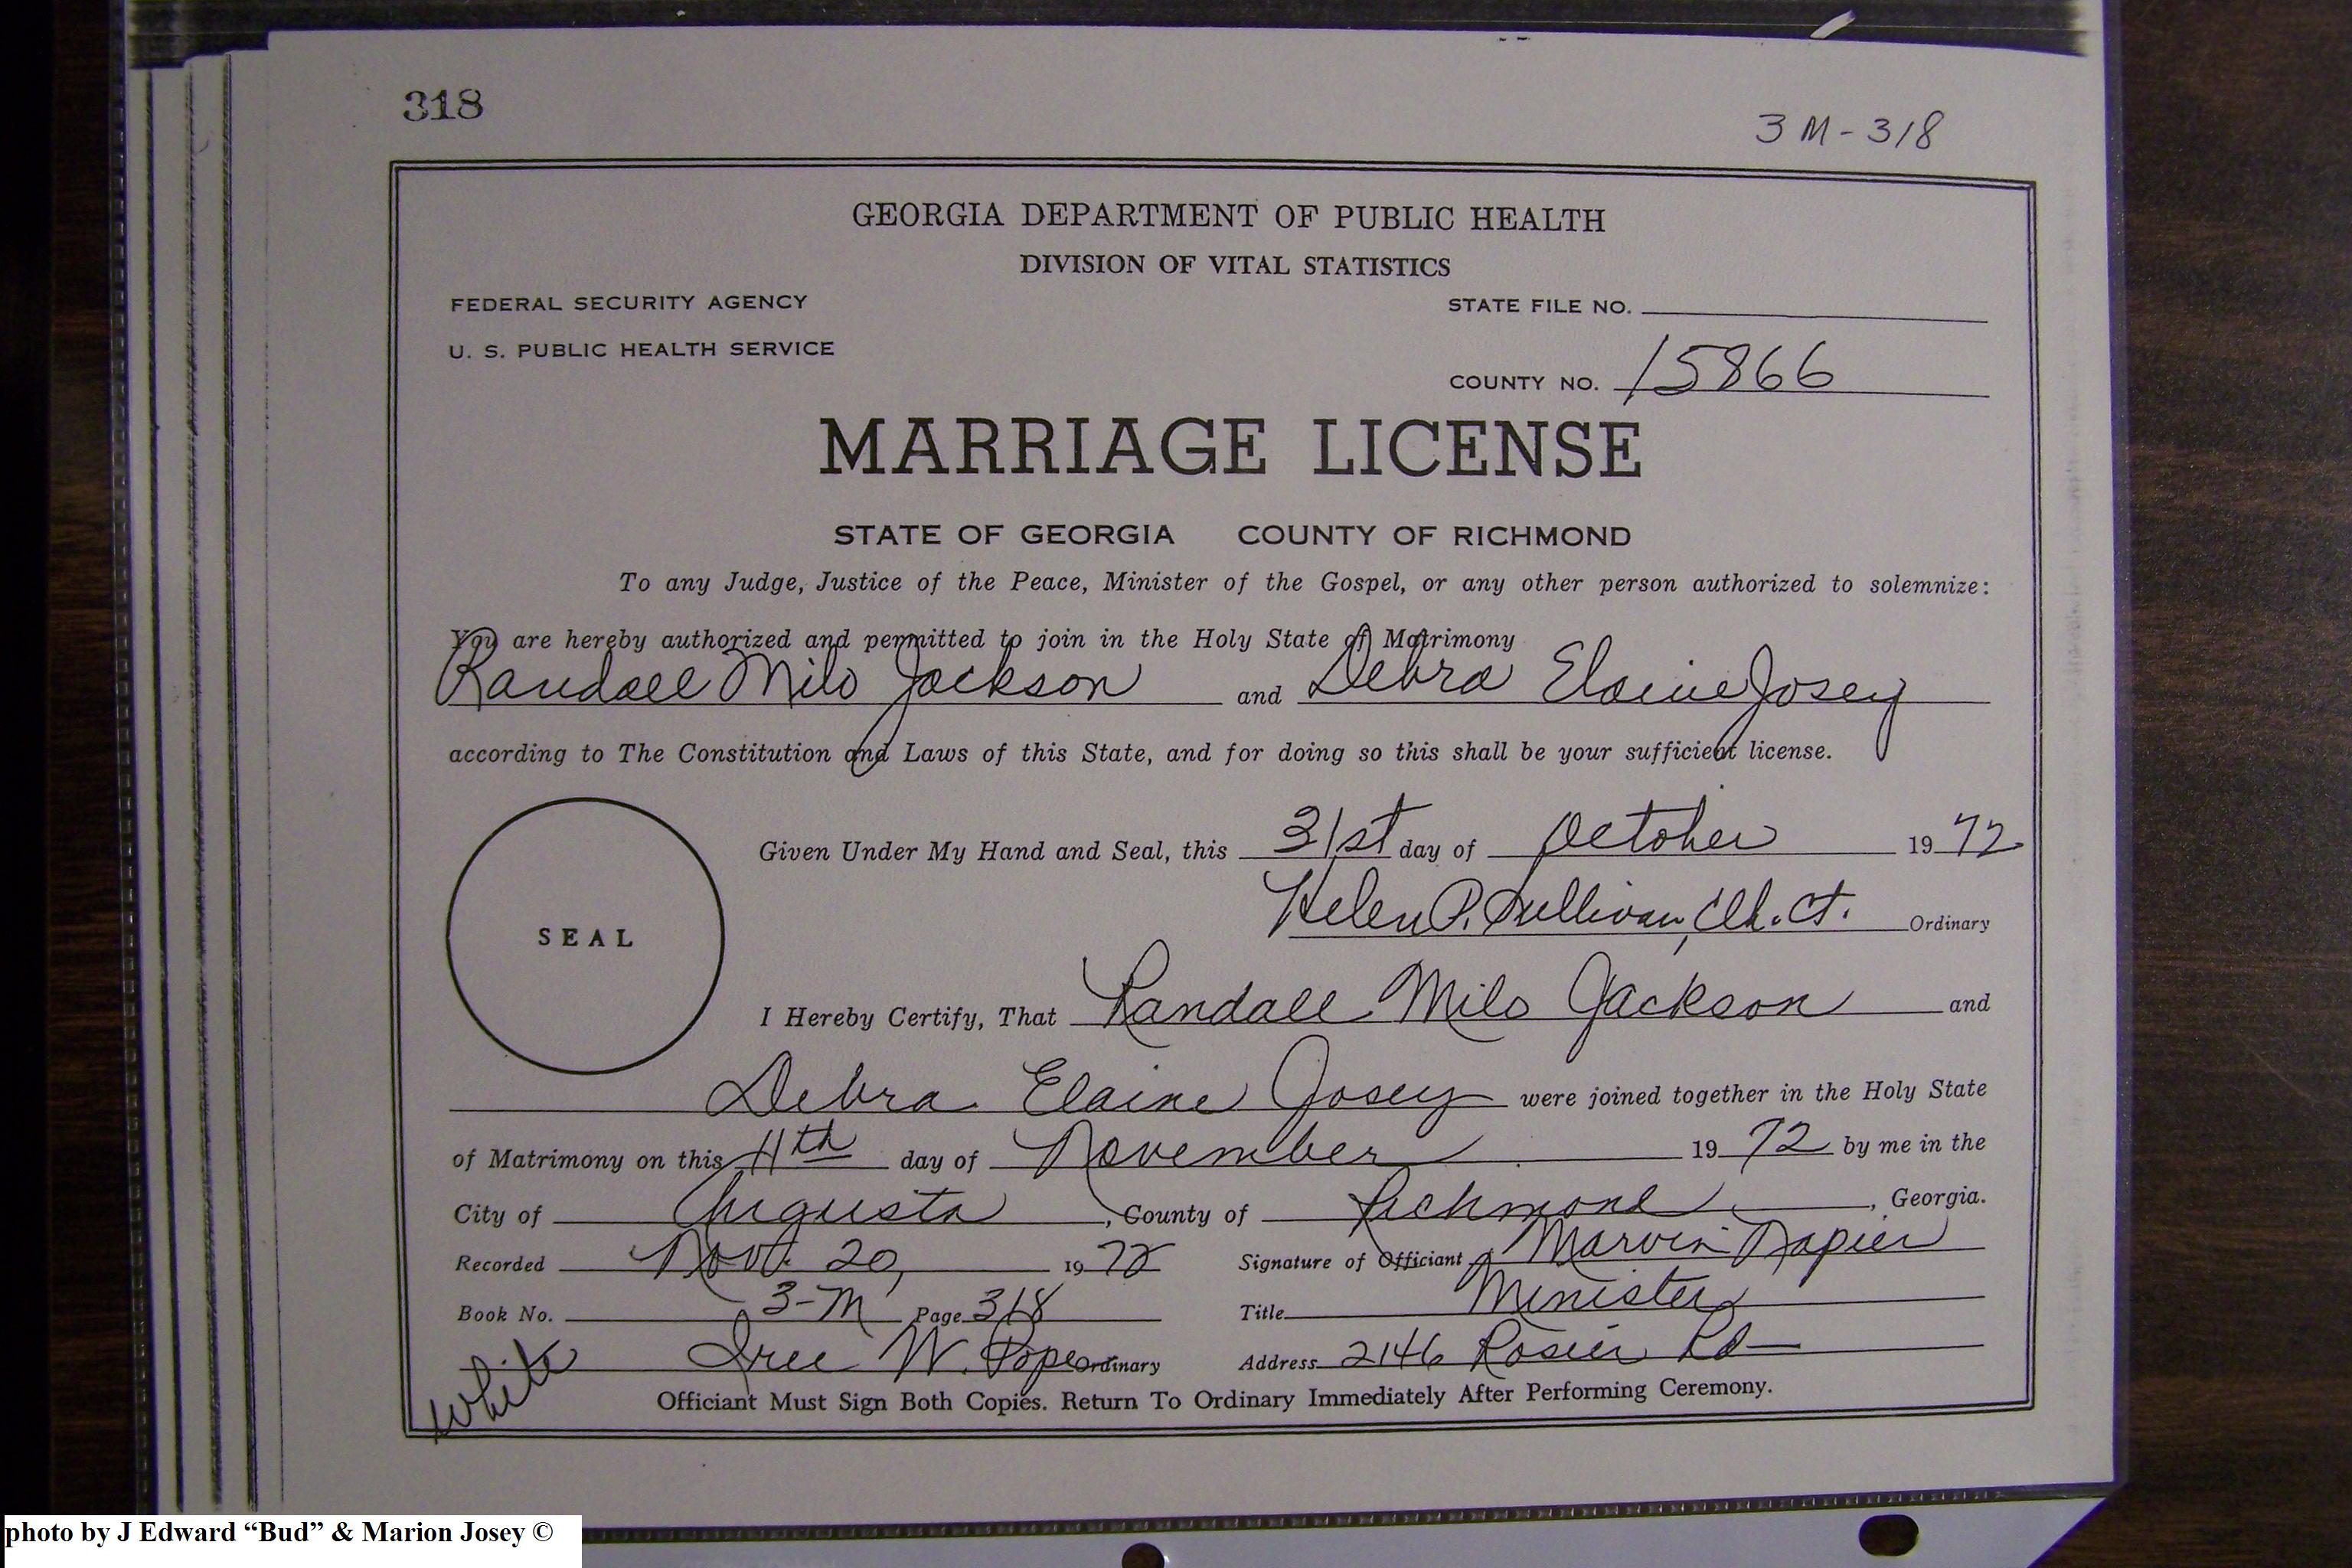 318
3M-318
GEORGIA DEPARTMENT OF PUBLIC HEALTH
DIVISION OF VITAL STATISTICS
FEDERAL SECURITY AGENCY STATE FILE NO.
U. S. PUBLIC HEALTH SERVICE
COUNTY NO. 15866
MARRIAGE LICENSE
STATE OF GEORGIA COUNTY OF RICHMOND
To any Judge, Justice of the Peace, Minister of the Gospel, or any other person authorized to solemnize:
You are hereby authorized and permitted to join in the Holy State of Matrimony
Randall Milo Jackson and Debra Elaine Josey
according to The Constitution and Laws of this State, and for doing so this shall be your sufficient license.
Given Under My Hand and Seal, this 31st day of October 1972
Helen P. Sullivan, Clk. Ct. Ordinary
SEAL
I Hereby Certify, That Randall Milo Jackson and
Debra Elaine Josey were joined together in the Holy State
of Matrimony on this 11th day of November 1972 by me in the
City of Augusta, County of Richmond, Georgia.
Recorded Nov. 20, 1972 Signature of Officiant Marvin Napier
Book No. 3-M Page 318 Title Minister
White W. Pope Ordinary Address 2146 Rosier Rd
Officiant Must Sign Both Copies. Return To Ordinary Immediately After Performing Ceremony.
photo by J Edward “Bud” & Marion Josey ©